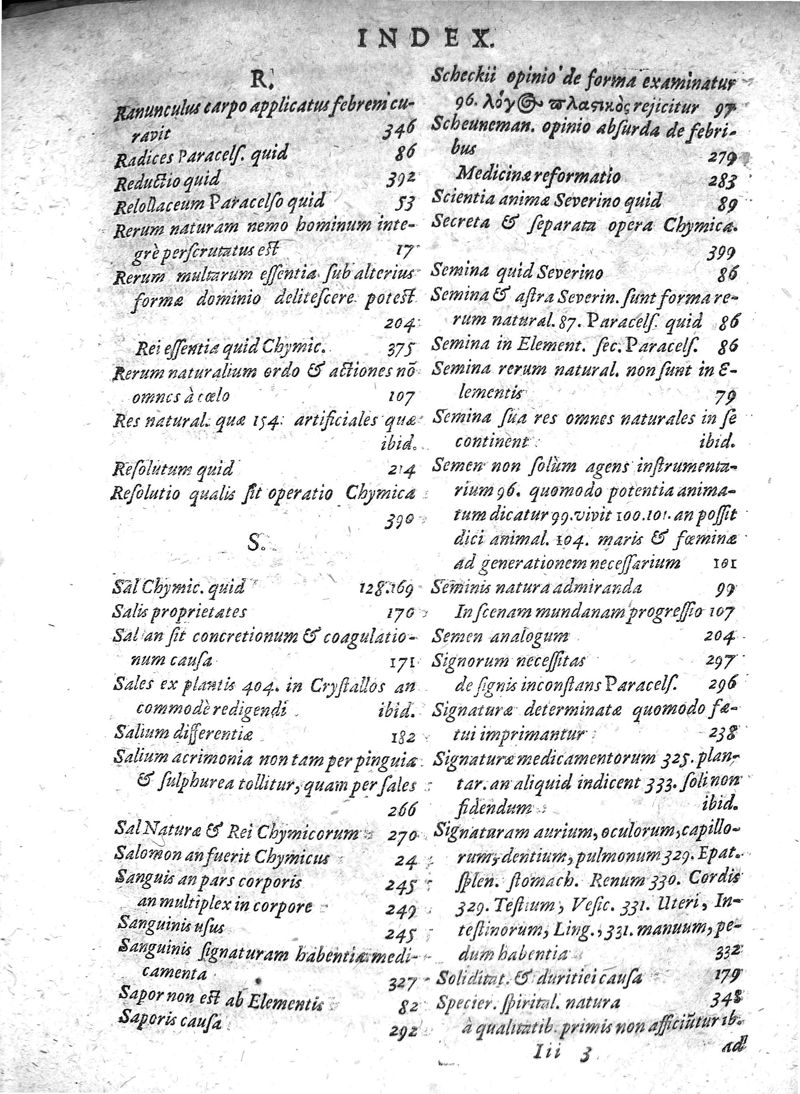 INDEX.
R.
Ranunculus carpo applicatus febrem cu-
ravit 346
Radices Paracelſ. quid 86
Reductio quid 392
Relollaceum Paracelſo quid 53
Rerum naturam nemo hominum inte-
grè perſcrutatus eſt 17
Rerum multarum eſſentia ſub alterius
formæ dominio deliteſcere poteſt
204
Rei eſſentia quid Chymic. 375
Rerum naturalium ordo & actiones nō
omnes à cœlo 107
Res natural. quæ 154. artificiales quæ
ibid.
Reſolutum quid 214
Reſolutio qualis ſit operatio Chymica
390
S.
Sal Chymic. quid 128.169
Salis proprietates 170
Sal an ſit concretionum & coagulatio-
num cauſa 171
Sales ex plantis 404. in Cryſtallos an
commodè redigendi ibid.
Salium differentiæ 182
Salium acrimonia non tam per pinguia
& ſulphurea tollitur, quam per ſales
266
Sal Naturæ & Rei Chymicorum 270
Salomon an fuerit Chymicus 24
Sanguis an pars corporis 245
an multiplex in corpore 249
Sanguinis uſus 245
Sanguinis ſignaturam habentia medi-
camenta 327
Sapor non eſt ab Elementis 82
Saporis cauſa 292
Scheckii opinio de forma examinatur
96. λόγ@ ϖλαςικός rejicitur 97
Scheuneman. opinio abſurda de febri-
bus 279
Medicinæ reformatio 283
Scientia animæ Severino quid 89
Secreta & ſeparata opera Chymica.
399
Semina quid Severino 86
Semina & aſtra Severin. ſunt forma re-
rum natural. 87. Paracelſ. quid 86
Semina in Element. ſec. Paracelſ. 86
Semina rerum natural. non ſunt in E-
lementis 79
Semina ſua res omnes naturales in ſe
continent ibid.
Semen non ſolùm agens inſtrumenta-
rium 96. quomodo potentia anima-
tum dicatur 99. vivit 100.101. an poſſit
dici animal. 104. maris & fœminæ
ad generationem neceſſarium 101
Seminis natura admiranda 99
In ſcenam mundanam progreſſio 107
Semen analogum 204
Signorum neceſſitas 297
de ſignis inconſtans Paracelſ. 296
Signaturæ determinatæ quomodo fæ-
tui imprimantur 238
Signaturæ medicamentorum 325. plan-
tar. an aliquid indicent 333. ſoli non
fidendum ibid.
Signaturam aurium, oculorum, capillo-
rum, dentium, pulmonum 329. Epat.
ſplen. ſtomach. Renum 330. Cordis
329. Teſtium, Veſic. 331. Uteri, In-
teſtinorum, Ling., 331. manuum, pe-
dum habentia 332
Soliditat. & duritiei cauſa 179
Specier. ſpirital. natura 348
à qualitatib. primis non afficiūtur ib.
Iii 3 ad